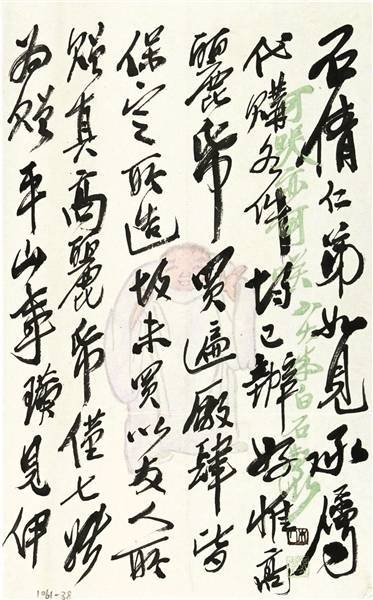 石倩仁弟如見承屬
代購各件均已辦好惟高
麗帋買遍廠肆皆
保定所造故未買以友人所
贈真高麗帋僅七張
為贈平山見伊
白石
1061-38